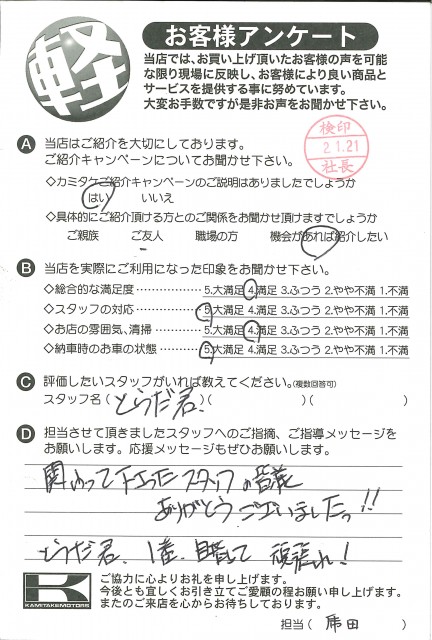 軽
お客様アンケート
当店では、お買い上げ頂いたお客様の声を可能
な限り現場に反映し、お客様により良い商品と
サービスを提供する事に努めています。
大変お手数ですが是非お声をお聞かせ下さい。
A 当店はご紹介を大切にしております。
ご紹介キャンペーンについてお聞かせ下さい。
検印
21.21
社長
◇カミタケご紹介キャンペーンのご説明はありましたでしょうか
はい いいえ
◇具体的にご紹介頂ける方とのご関係をお聞かせ頂けますでしょうか
ご親族 ご友人 職場の方 機会があれば紹介したい
B 当店を実際にご利用になった印象をお聞かせ下さい。
◇総合的な満足度 5.大満足 4.満足 3.ふつう 2.やや不満 1.不満
◇スタッフの対応 5.大満足 4.満足 3.ふつう 2.やや不満 1.不満
◇お店の雰囲気、清掃 5.大満足 4.満足 3.ふつう 2.やや不満 1.不満
◇納車時のお車の状態 5.大満足 4.満足 3.ふつう 2.やや不満 1.不満
C 評価したいスタッフがいれば教えてください。(複数回答可)
スタッフ名(とらだ君.)( )( )
D 担当させて頂きましたスタッフへのご指摘、ご指導メッセージを
お願いします。応援メッセージもぜひお願いします。
関わって下さったスタッフの皆様
ありがとうございましたっ!!
とらだ君. 1番. 目指して 頑張れ!
K
KAMITAKEMOTORS
ご協力に心よりお礼を申し上げます。
今後とも宜しくお引き立てご愛顧の程お願い申し上げます。
またのご来店を心からお待ちしております。
担当( 席田 )